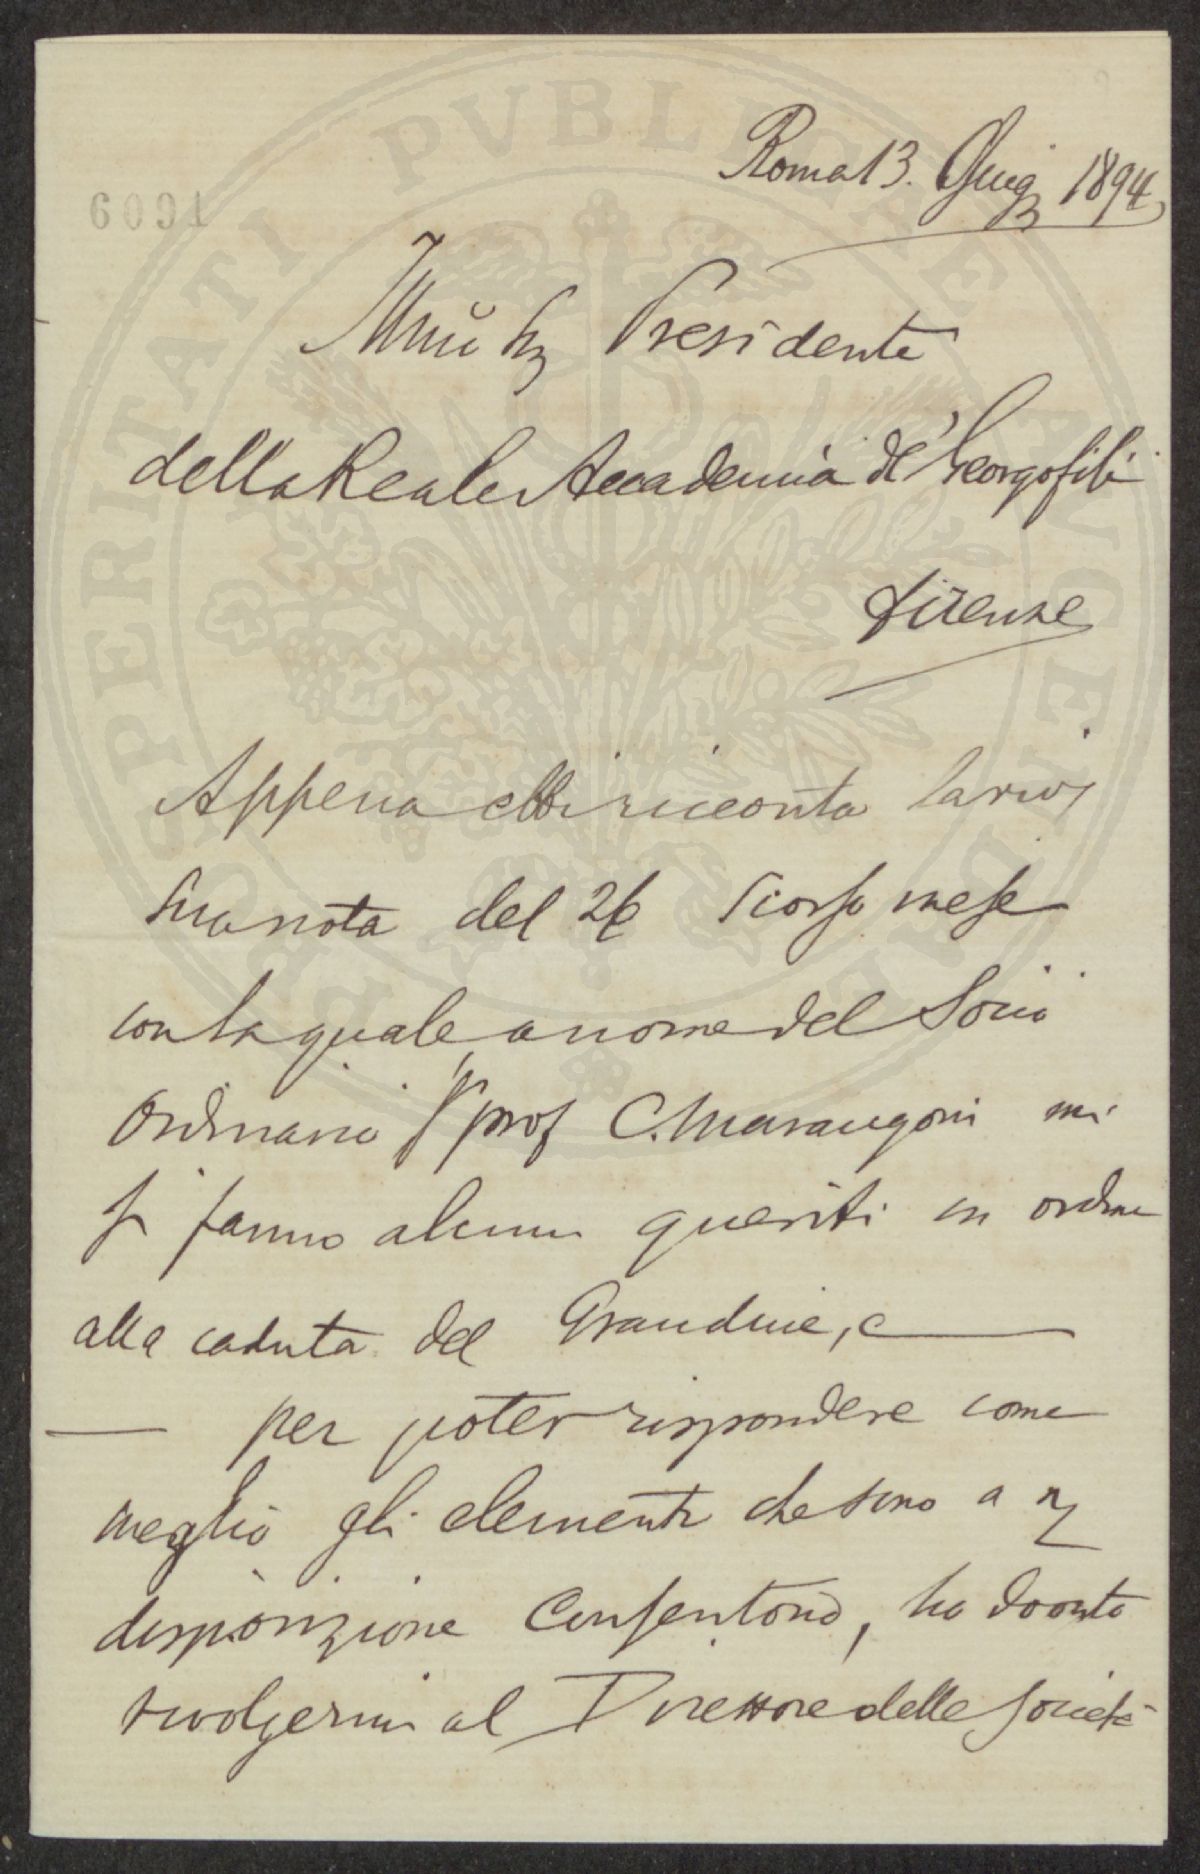 PROSPERITATI PVBLICAE AVGENDAE
6091
Roma 13. Giug 1894
Illmo Sig Presidente
della Reale Accademia de' Georgofili
Firenze
Appena ebbi ricevuta la riv
sua nota del 26 scorso mese
con la quale a nome del Socio
Ordinario prof C. Marangoni mi
si fanno alcuni quesiti in ordine
alla caduta del Grandine, e
per poter rispondere come
meglio gli elementi che sono a
disposizione consentono, ho dovuto
rivolgermi al Direttore della Società